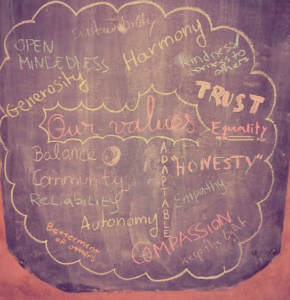 Sustainability
OPEN
MINDEDNESS
Harmony
Kindness
Generosity
TRUST
Our values
Equality
Balance
ADAPTABLE
"HONESTY"
Community
Empathy
RELIABILITY
Autonomy
Betterment
of others
COMPASSION